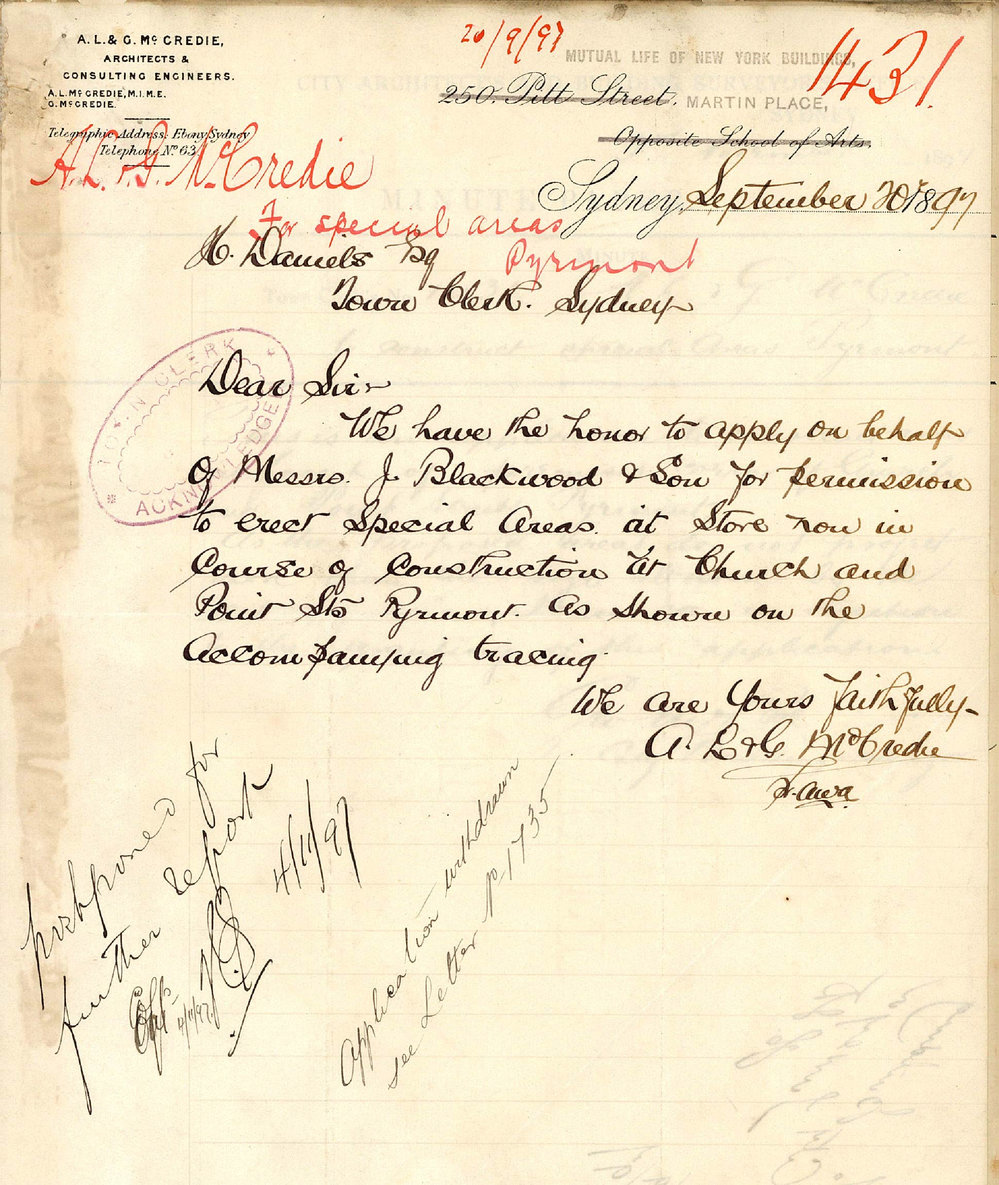 A. L. & G. Mc CREDIE,
ARCHITECTS &
CONSULTING ENGINEERS.
A. L. Mc CREDIE, M.I.M.E.
G. McCREDIE.
Telegraphic Address: Ebony Sydney
Telephone No 63
20/9/97
1431.
MUTUAL LIFE OF NEW YORK BUILDINGS,
250. Pitt Street. MARTIN PLACE,
Opposite School of Arts.
A. L. & G. McCredie
Sydney, September 20th 1897
For special areas
Pyrmont
H. Daniels Esq
Town Clerk. Sydney
TOWN CLERK
ACKNOWLEDGED
Dear Sir
We have the honor to apply on behalf
of Messrs. J Blackwood & Son for permission
to erect Special Areas at Store now in
Course of Construction at Church and
Point Sts Pyrmont. as shown on the
accompanying tracing
We are Yours faithfully
A. L & G. McCredie
postponed for
further report
4/11/97
4/11/97
Application withdrawn
see Letter No 1735